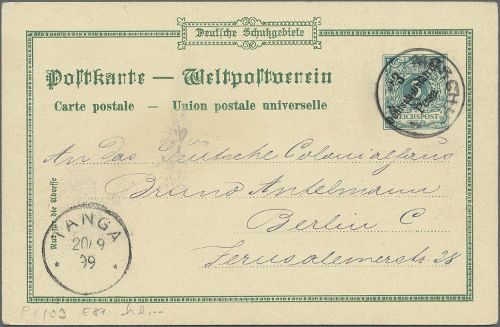 Deutsche Schutzgebiete
Postkarte — Weltpostverein
Carte postale — Union postale universelle
REICHSPOST
3
An das Deutsche Colonialhaus
Bruno Antelmann
Berlin C
Jerusalemerstr 28
Nur für die Adresse
TANGA
20/9
99